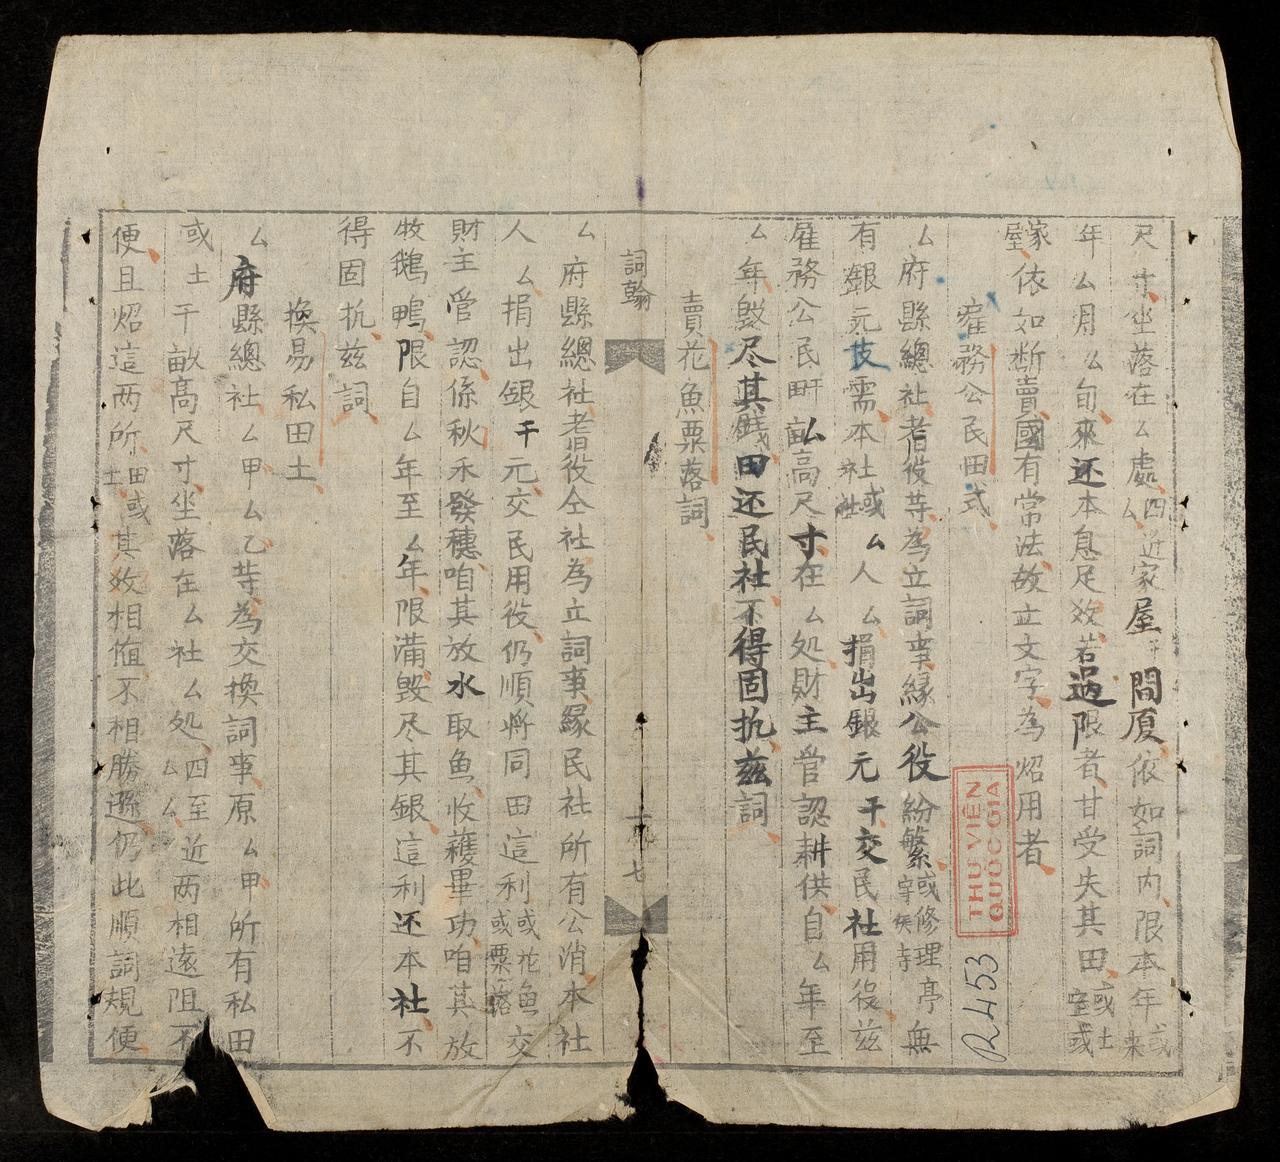 尺寸坐落在厶處四近厶家屋干間厦依如詞内限本年或來
年厶月厶旬來还本息足效若過限者甘受失其田或土或
家屋依如断賣國有常法故立文字為炤用者
雇務公民田式
厶府縣總社者役等為立詞事緣公役紛繁或修理亭宇無
有銀元支需本社或厶人厶捐出銀元干交民社用役茲
雇務公民田干畝高尺寸在厶处財主管認耕供自厶年至
厶年毁尽其錢田还民社不得固抗兹詞
賣花魚粟落詞
詞翰
十七
厶府縣總社耆役仝社為立詞事緣民社所有公消本社
人厶捐出銀干元交民用役仍順將同田這利或花魚或粟落交
財主管認係秋禾發穗咱其放水取魚收穫畢功咱其放
牧鵝鴨限自厶年至厶年限満毁尽其銀這利还本社不
得固抗兹詞
換易私田土
厶府縣總社厶甲厶乙等為交換詞事原厶甲所有私田
或土干畝高尺寸坐落在厶社厶处四至近厶厶両相遠阻不
便且炤這两所田或土其效相値不相勝遜仍此順詞規便
THƯ VIỆN
QUỐC GIA
R.453